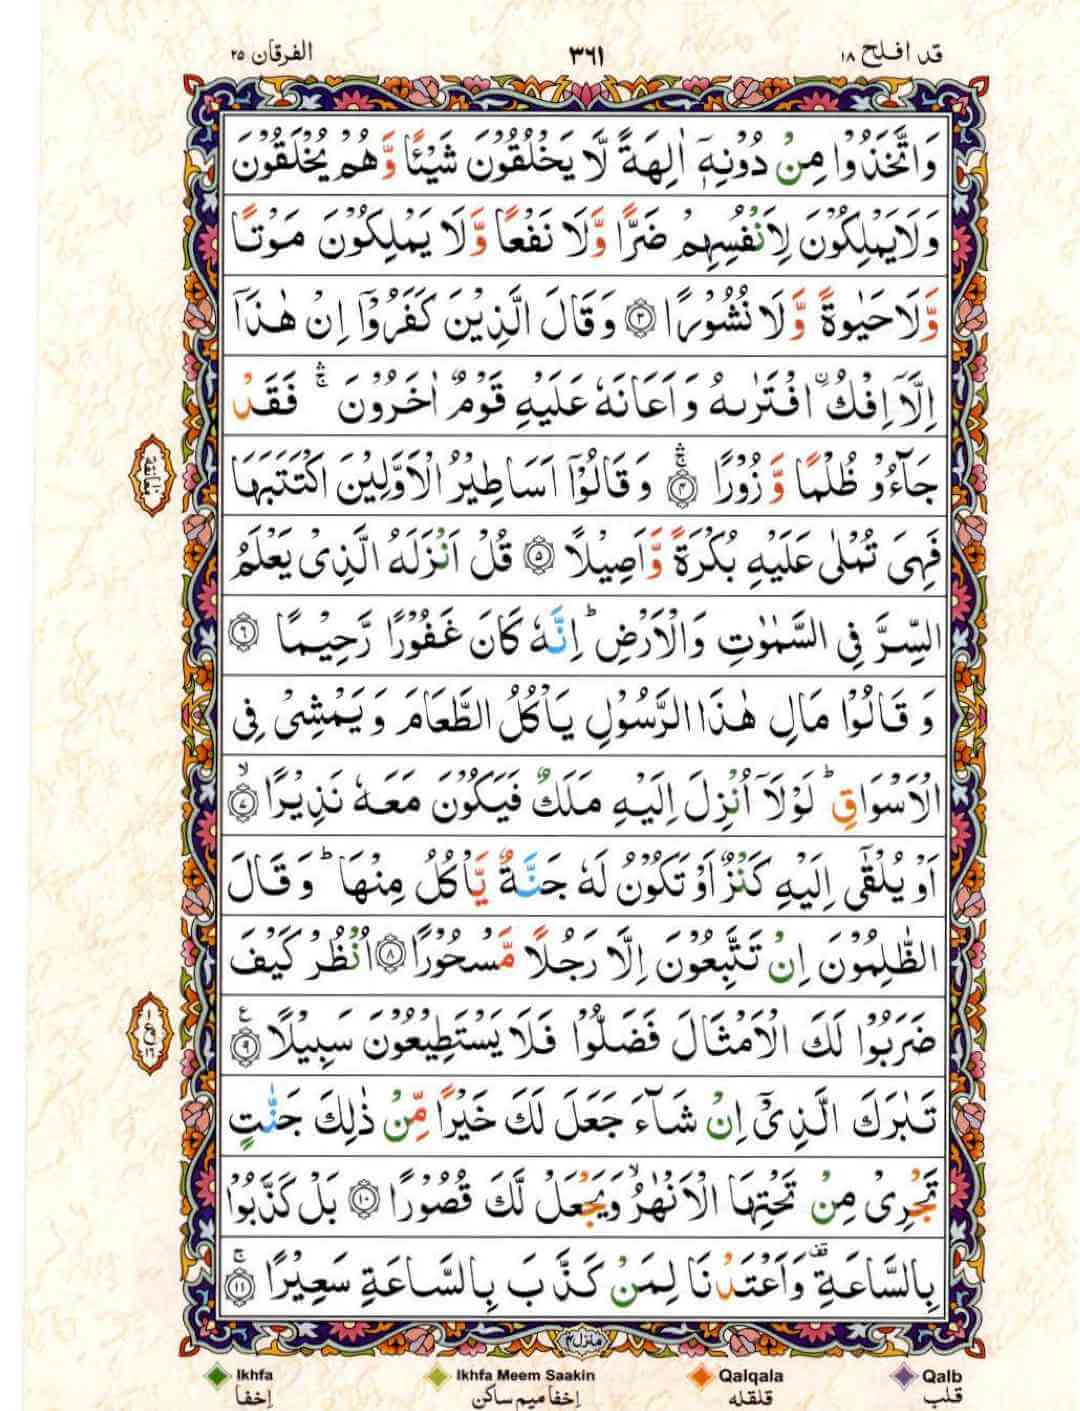 قد افلح ١٨
٣٦١
الفرقان ٢٥
وَاتَّخَذُوْا مِنْ دُوْنِهٖٓ اٰلِهَةً لَّا يَخْلُقُوْنَ شَيْـًٔا وَّهُمْ يُخْلَقُوْنَ
وَلَا يَمْلِكُوْنَ لِاَنْفُسِهِمْ ضَرًّا وَّلَا نَفْعًا وَّلَا يَمْلِكُوْنَ مَوْتًا
وَّلَا حَيٰوةً وَّلَا نُشُوْرًا ۝٣ وَقَالَ الَّذِيْنَ كَفَرُوْٓا اِنْ هٰذَآ
اِلَّآ اِفْكُ ۨافْتَرٰىهُ وَاَعَانَهٗ عَلَيْهِ قَوْمٌ اٰخَرُوْنَ ۛۚ فَقَدْ
جَآءُوْ ظُلْمًا وَّزُوْرًا ۛۚ۝٤ وَقَالُوْٓا اَسَاطِيْرُ الْاَوَّلِيْنَ اكْتَتَبَهَا
فَهِىَ تُمْلٰى عَلَيْهِ بُكْرَةً وَّاَصِيْلًا ۝٥ قُلْ اَنْزَلَهُ الَّذِىْ يَعْلَمُ
السِّرَّ فِى السَّمٰوٰتِ وَالْاَرْضِ ؕ اِنَّهٗ كَانَ غَفُوْرًا رَّحِيْمًا ۝٦
وَقَالُوْا مَالِ هٰذَا الرَّسُوْلِ يَاْكُلُ الطَّعَامَ وَيَمْشِىْ فِى
الْاَسْوَاقِ ؕ لَوْلَآ اُنْزِلَ اِلَيْهِ مَلَكٌ فَيَكُوْنَ مَعَهٗ نَذِيْرًا ۙ۝٧
اَوْ يُلْقٰٓى اِلَيْهِ كَنْزٌ اَوْ تَكُوْنُ لَهٗ جَنَّةٌ يَّاْكُلُ مِنْهَا ؕ وَقَالَ
الظّٰلِمُوْنَ اِنْ تَتَّبِعُوْنَ اِلَّا رَجُلًا مَّسْحُوْرًا ۝٨ اُنْظُرْ كَيْفَ
ضَرَبُوْا لَكَ الْاَمْثَالَ فَضَلُّوْا فَلَا يَسْتَطِيْعُوْنَ سَبِيْلًا ۝٩ ع
تَبٰرَكَ الَّذِىْٓ اِنْ شَآءَ جَعَلَ لَكَ خَيْرًا مِّنْ ذٰلِكَ جَنّٰتٍ
تَجْرِىْ مِنْ تَحْتِهَا الْاَنْهٰرُ ۙ وَيَجْعَلْ لَّكَ قُصُوْرًا ۝١٠ بَلْ كَذَّبُوْا
بِالسَّاعَةِ قف وَاَعْتَدْنَا لِمَنْ كَذَّبَ بِالسَّاعَةِ سَعِيْرًا ۚ۝١١
منزل ٤
Ikhfa
Ikhfa Meem Saakin
Qalqala
Qalb
إخفا
إخفا ميم ساكن
قلقله
قلب